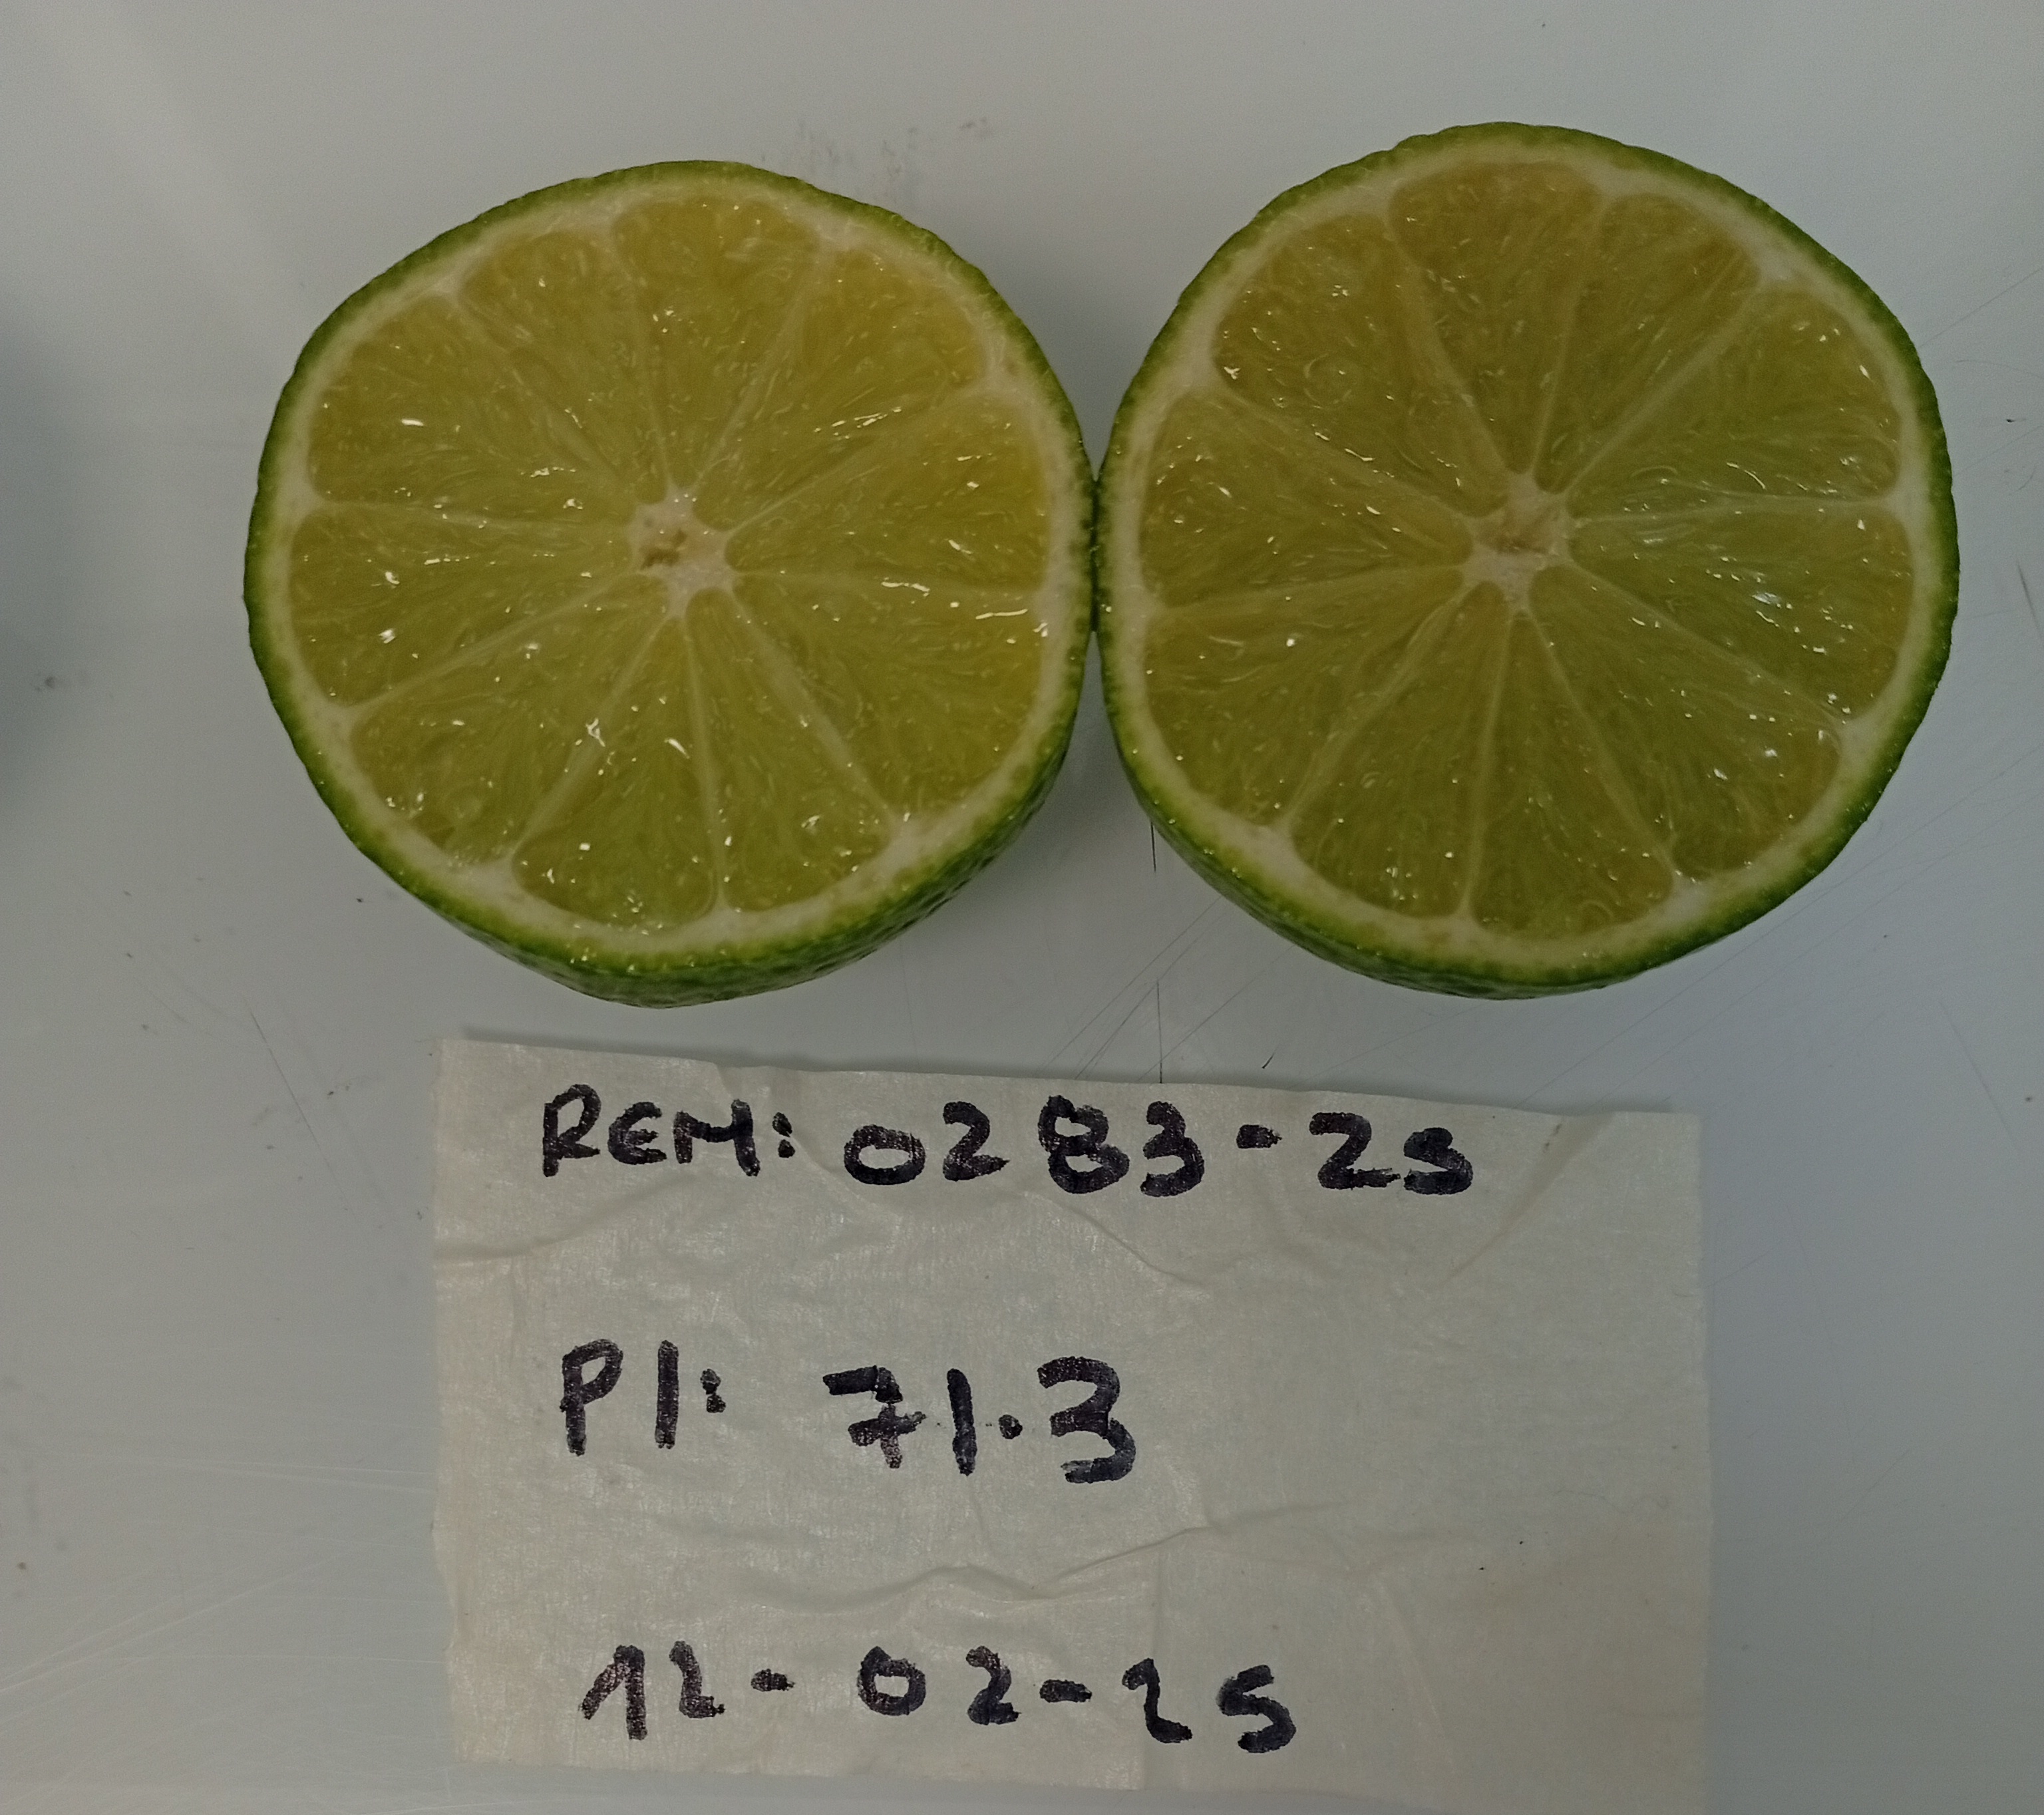 REM: 0283-25
PI: 71.3
12-02-25